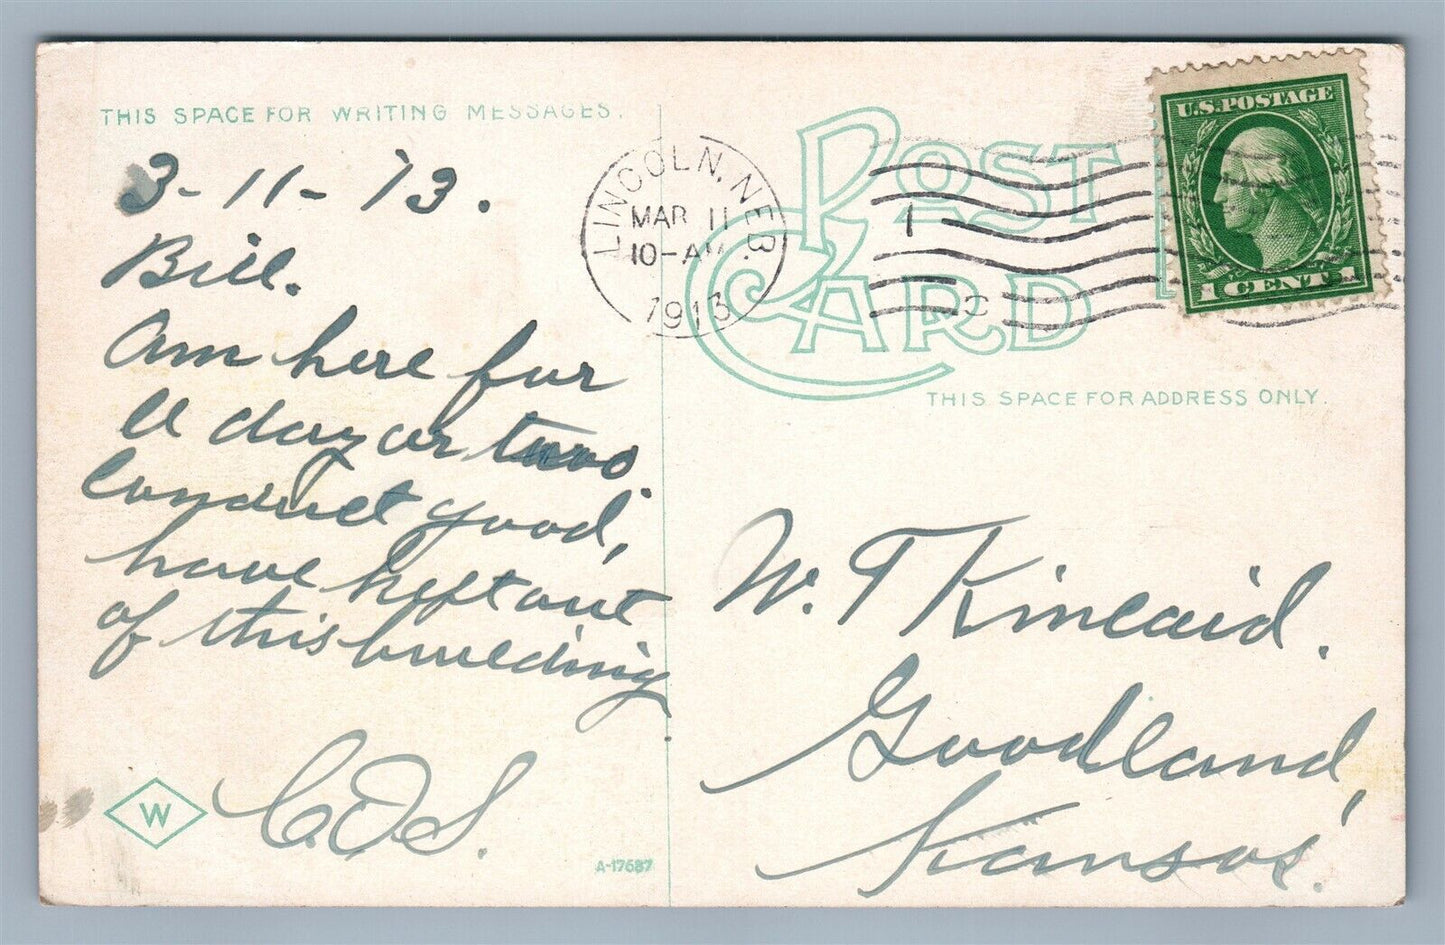 THIS SPACE FOR WRITING MESSAGES.
3-11-13.
Bill.
Am here for
a day or two.
Conduct good,
have kept out
of this building
C.O.S.
W
A-17687
LINCOLN, NEB.
MAR 11
10-AM
1913
1
C
POST
CARD
U.S. POSTAGE
1 CENT 1
THIS SPACE FOR ADDRESS ONLY.
W. T Kincaid.
Goodland,
Kansas.